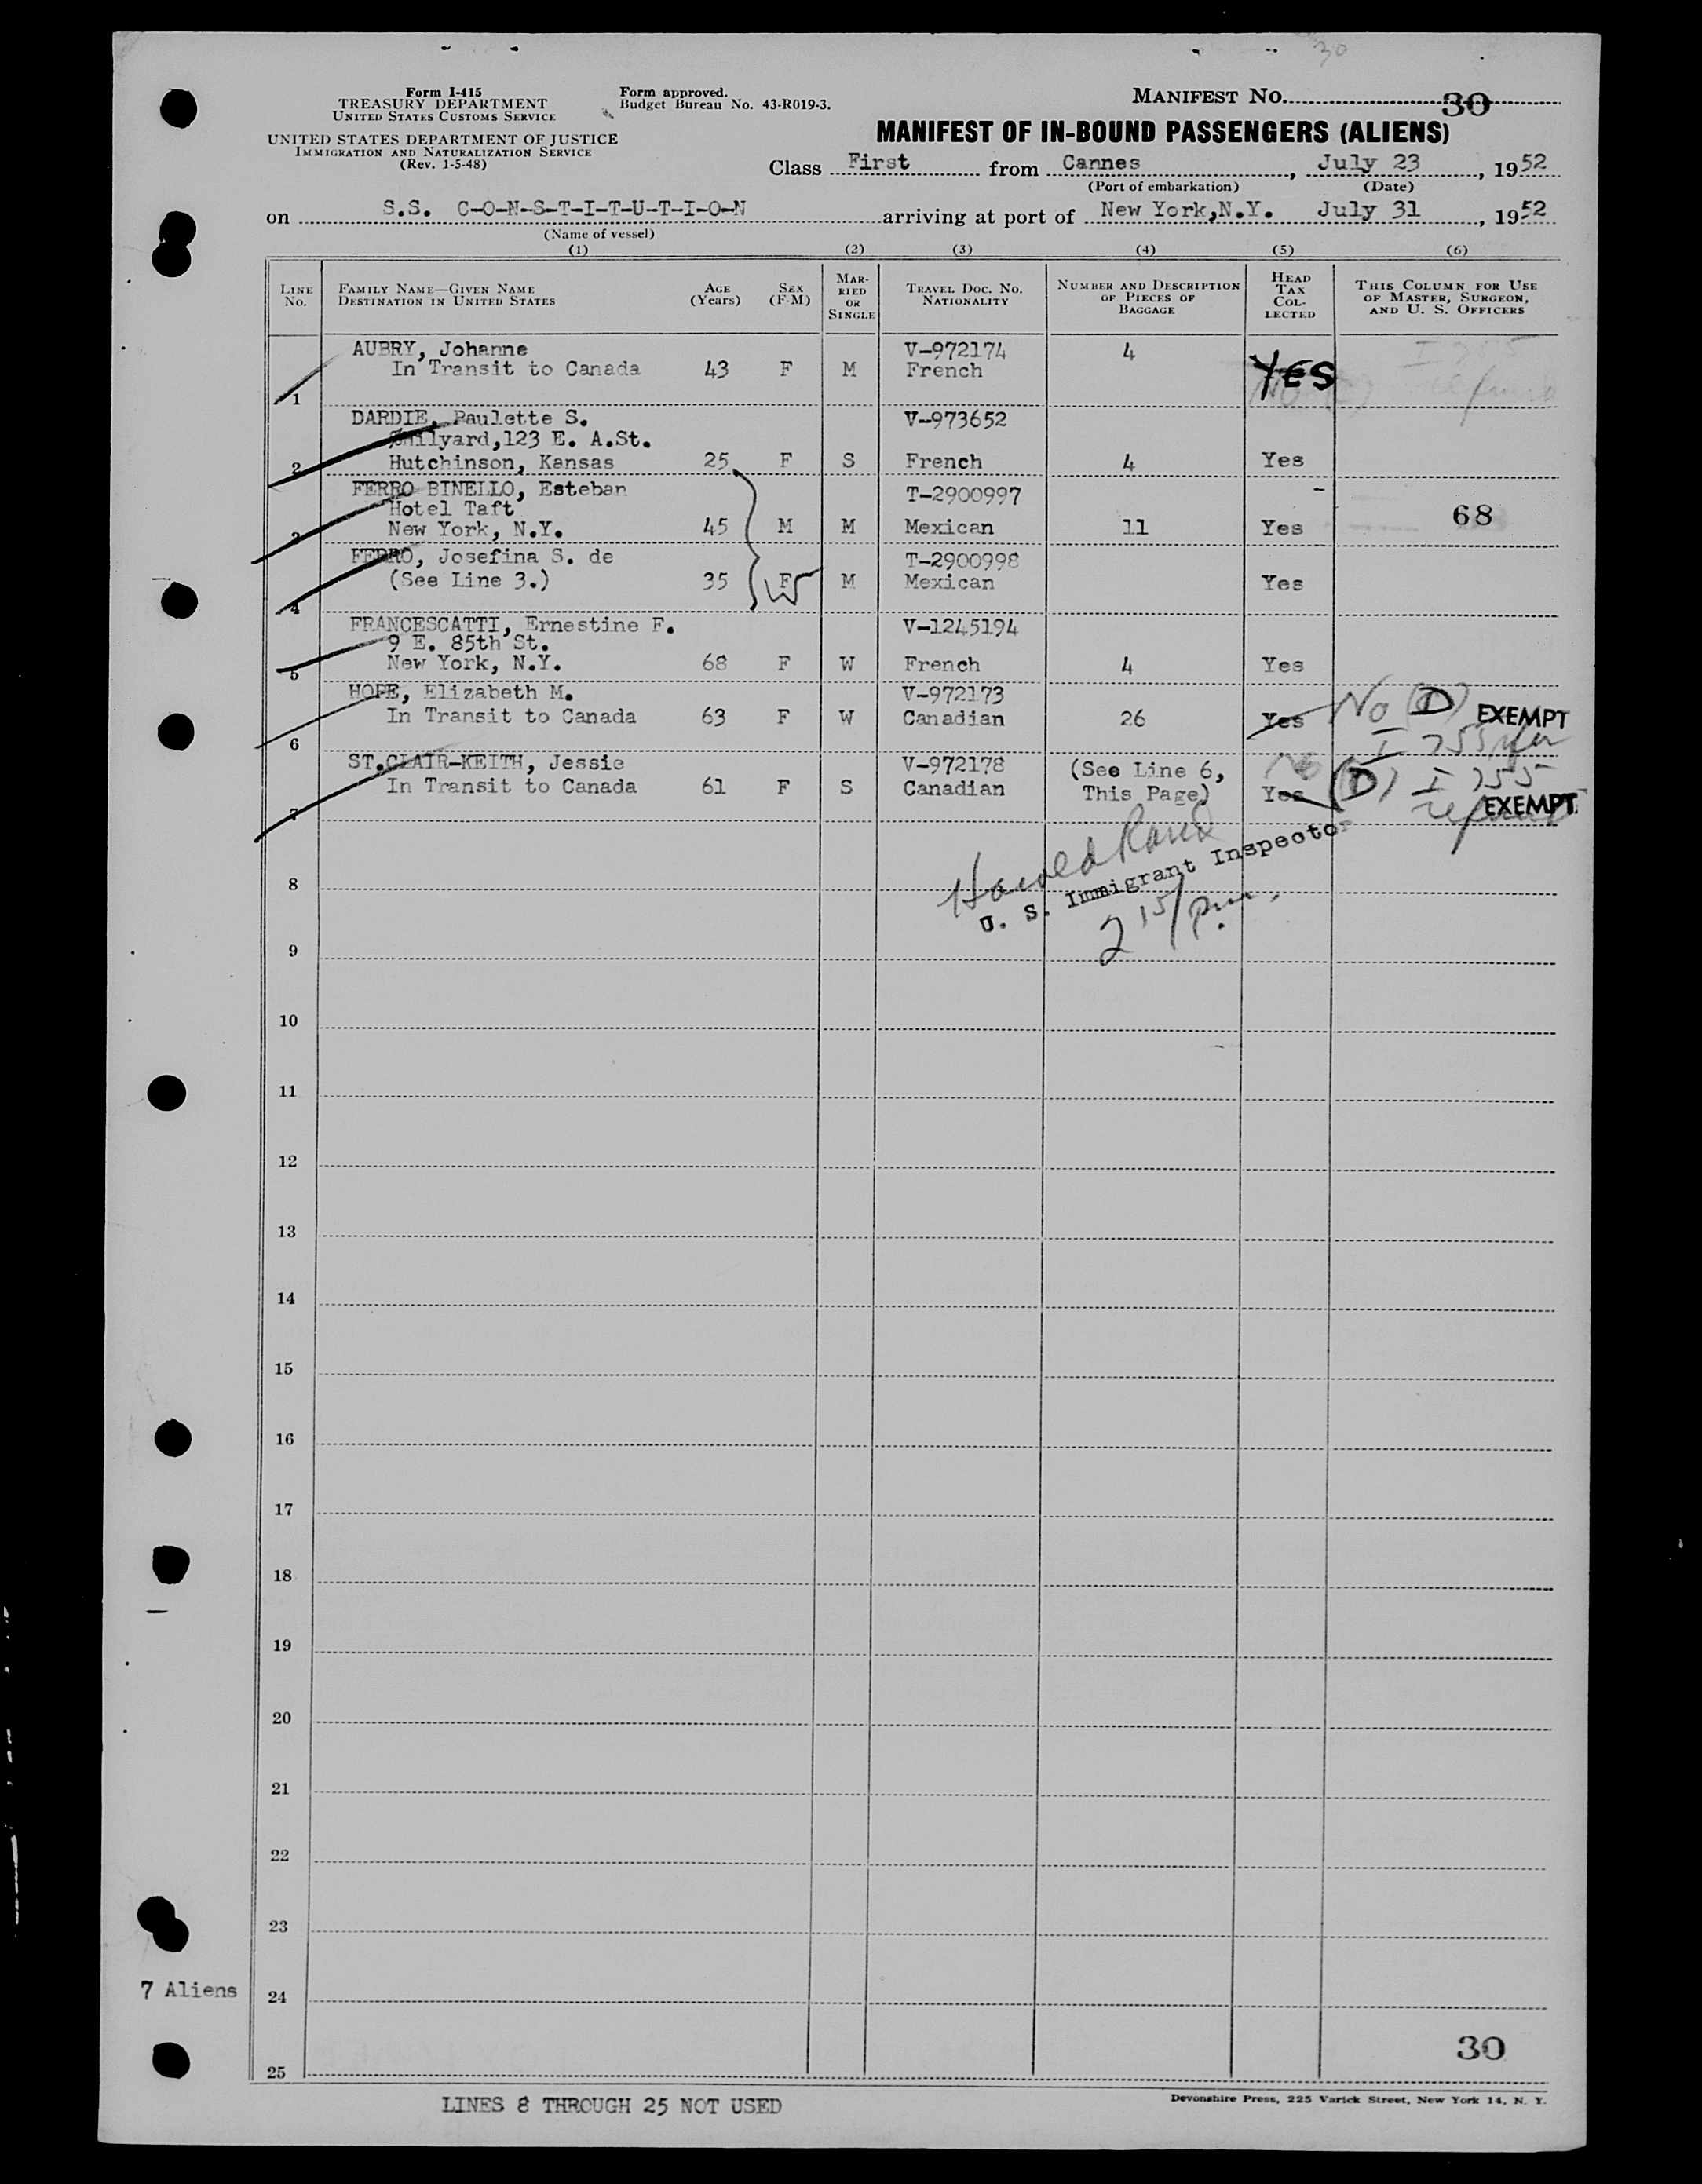 30
Form I-415
TREASURY DEPARTMENT
UNITED STATES CUSTOMS SERVICE
UNITED STATES DEPARTMENT OF JUSTICE
IMMIGRATION AND NATURALIZATION SERVICE
(Rev. 1-5-48)
Form approved.
Budget Bureau No. 43-R019-3.
MANIFEST NO. 30
MANIFEST OF IN-BOUND PASSENGERS (ALIENS)
Class First from Cannes, July 23, 1952
(Port of embarkation) (Date)
on S.S. C-O-N-S-T-I-T-U-T-I-O-N arriving at port of New York, N.Y. July 31, 1952
(Name of vessel)
(1) (2) (3) (4) (5) (6)
LINE No.
FAMILY NAME—GIVEN NAME
DESTINATION IN UNITED STATES
AGE (Years)
SEX (F-M)
MARRIED OR SINGLE
TRAVEL DOC. NO.
NATIONALITY
NUMBER AND DESCRIPTION OF PIECES OF BAGGAGE
HEAD TAX COLLECTED
THIS COLUMN FOR USE OF MASTER, SURGEON, AND U. S. OFFICERS
AUBRY, Johanne V-972174 4
In Transit to Canada 43 F M French YES
1
DARDIE, Paulette S. V-973652
123 E. A.St.
2 Hutchinson, Kansas 25 F S French 4 Yes
FERRO BINELLO, Esteban T-2900997
Hotel Taft 68
3 New York, N.Y. 45 M M Mexican 11 Yes
FERRO, Josefina S. de T-2900998
(See Line 3.) 35 F M Mexican Yes
4
FRANCESCATTI, Ernestine F. V-1245194
9 E. 85th St.
5 New York, N.Y. 68 F W French 4 Yes
HOPE, Elizabeth M. V-972173
In Transit to Canada 63 F W Canadian 26 Yes No (D) EXEMPT
6 I 755
ST.CLAIR-KEITH, Jessie V-972178 (See Line 6, No
In Transit to Canada 61 F S Canadian This Page) Yes (D) I 755
7 EXEMPT
Harold
U. S. Immigrant Inspector
2 15/pm.
8
9
10
11
12
13
14
15
16
17
18
19
20
21
22
23
7 Aliens 24
30
25
LINES 8 THROUGH 25 NOT USED
Devonshire Press, 225 Varick Street, New York 14, N. Y.